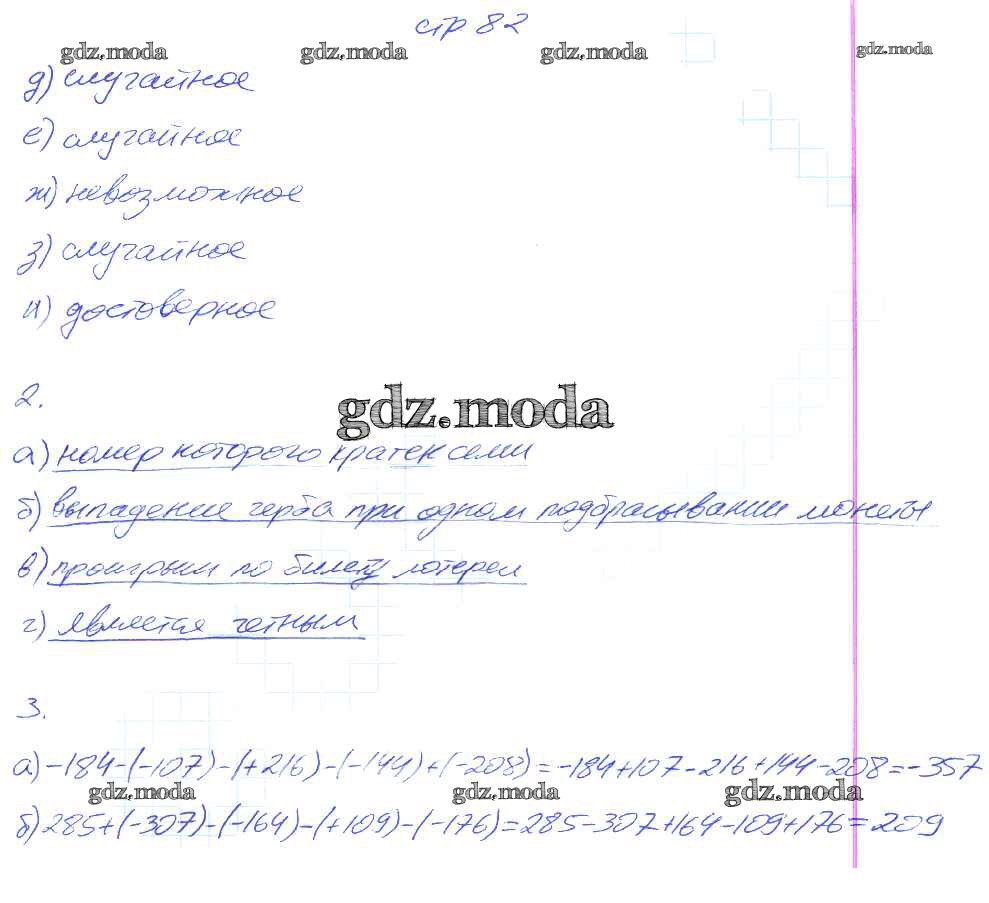 стр 82
gdz.moda gdz.moda gdz.moda gdz.moda
д) случайное
е) случайное
ж) невозможное
з) случайное
и) достоверное
2.
gdz.moda
а) номер которого кратен семи
б) выпадение герба при одном подбрасывании монеты
в) проигрыш по билету лотереи
г) является четным
3.
а) -184-(-107)-(+216)-(-144)+(-208)=-184+107-216+144-208=-357
gdz.moda gdz.moda gdz.moda
б) 285+(-307)-(-164)-(+109)-(-176)=285-307+164-109+176=209